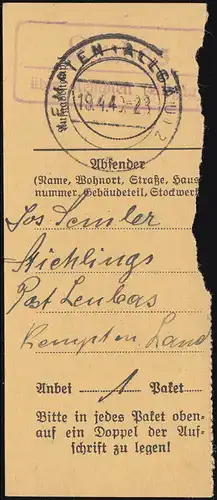 KEMPTEN (ALLGÄU)
19.4.4
Absender
(Name, Wohnort, Straße, Haus
nummer, Gebäudeteil, Stockwerk
Jos Semler
Stichlings
Post Leubas
Kempten Land
Anbei 1 Paket
Bitte in jedes Paket oben-
auf ein Doppel der Auf-
schrift zu legen!